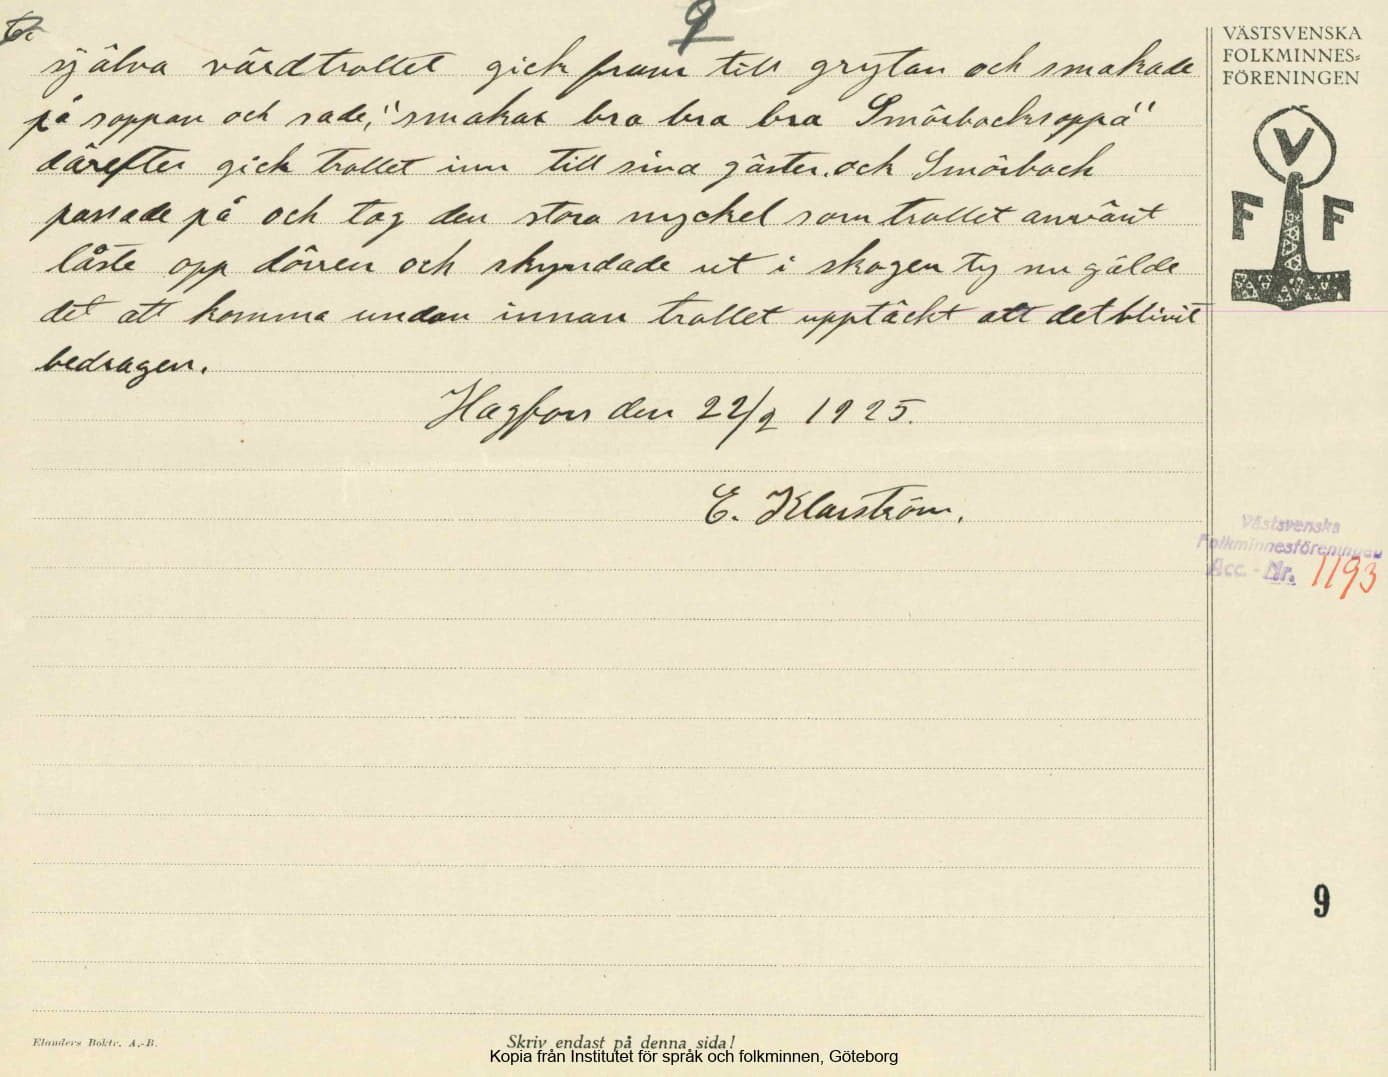 9
själva värdtrollet gick fram till grytan och smakade
på soppan och sade, "smakar bra bra bra Smörbocksoppa"
därefter gick trollet inn till sina gäster. och Smörbock
passade på och tog den stora nyckel som trollet använt
låste opp dörren och skyndade ut i skogen ty nu gälde
det att komma undan innan trollet upptäckt att det blivit
bedragen.
Hagfors den 22/9 1925.
E. Klarström.
VÄSTSVENSKA
FOLKMINNES=
FÖRENINGEN
V
F F
Västsvenska
Folkminnesföreningen
Acc.-Nr. 1193
9
Elanders Boktr. A.-B.
Skriv endast på denna sida!
Kopia från Institutet för språk och folkminnen, Göteborg